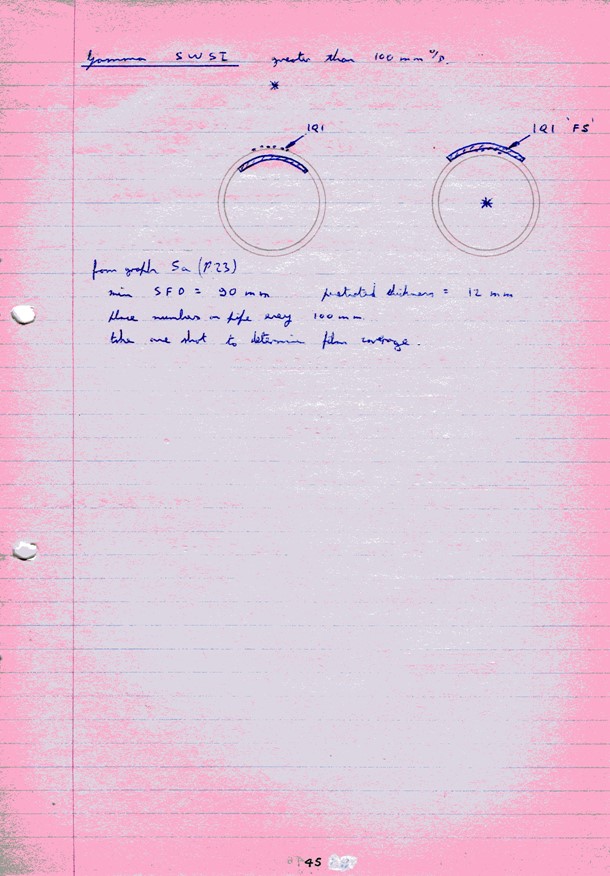 Gamma SWSI greater than 100 mm o/s.
IQI
IQI 'FS'
from graph 5a (P.23)
min SFD = 90 mm penetrated thickness = 12 mm
place numbers on pipe every 100 mm.
take one shot to determine film coverage.
45